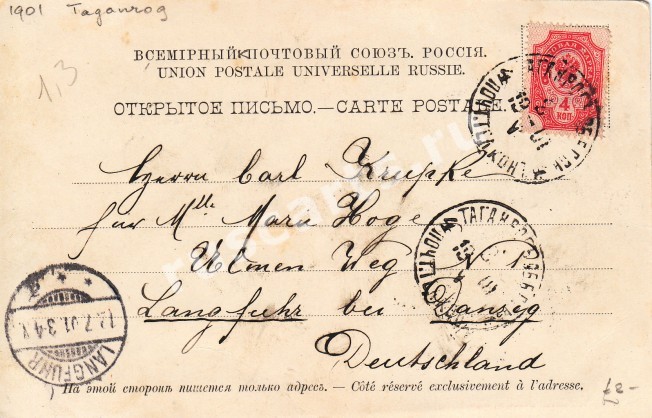 1901 Taganrog
1,3
ВСЕМІРНЫЙ ПОЧТОВЫЙ СОЮЗЪ. РОССІЯ.
UNION POSTALE UNIVERSELLE RUSSIE.
ОТКРЫТОЕ ПИСЬМО.—CARTE POSTALE.
4
КОП
Herrn Carl Krupke
für Mlle Maria Hoge
Ulmen Weg № 1
Langfuhr bei Danzig
Deutschland
ТАГАНРОГЪ
LANGFUHR
12.7.01.3-4
На этой сторонѣ пишется только адресъ. — Côté réservé exclusivement à l'adresse.
ruscarts.ru